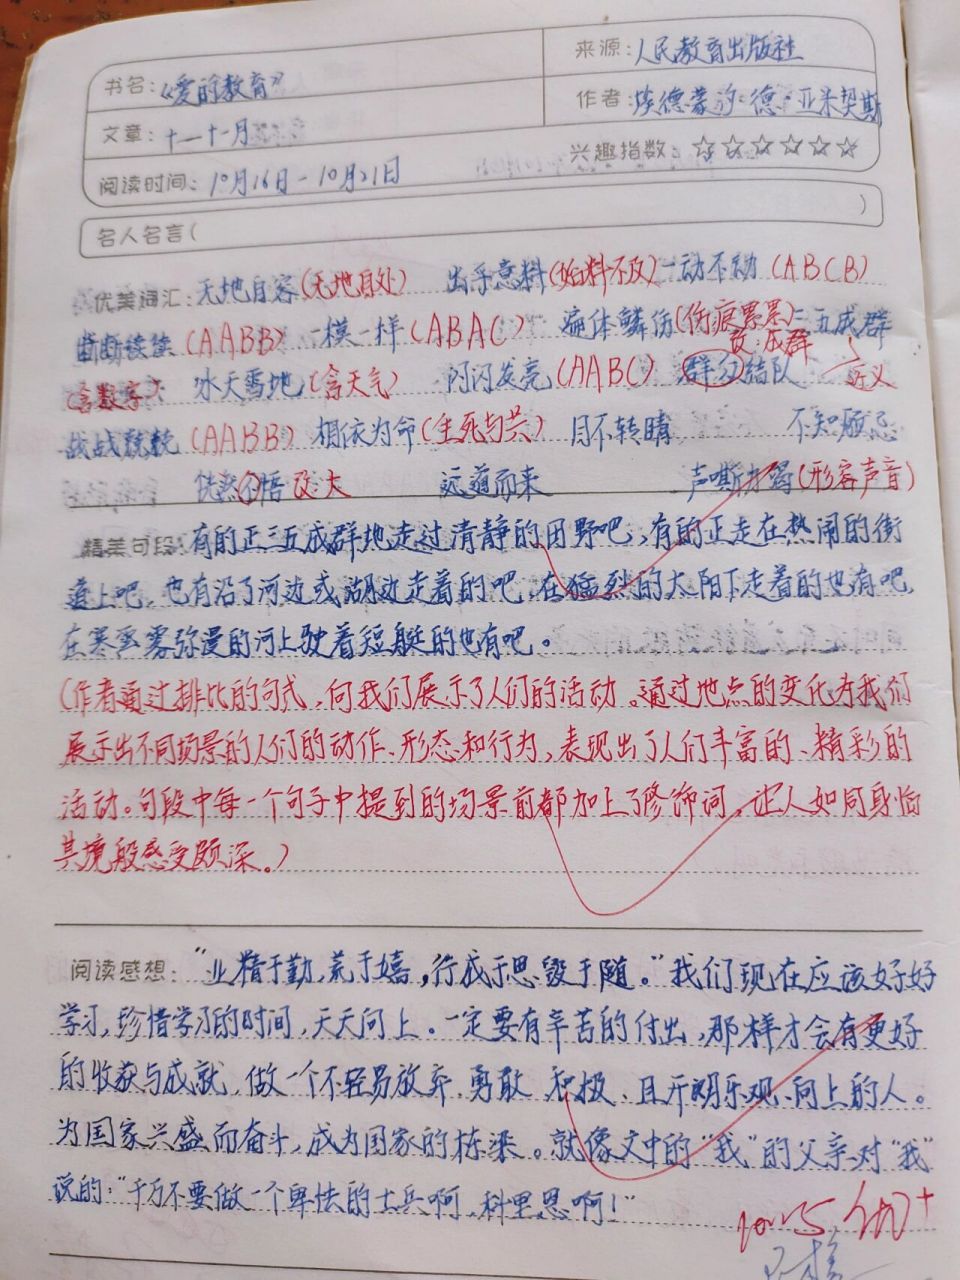 书名:《爱的教育》
来源:人民教育出版社
作者:埃德蒙多·德·亚米契斯
文章:十—十一月
兴趣指数:☆☆☆☆☆☆
阅读时间:10月16日-10月21日
名人名言( )
优美词汇:无地自容(无地自处) 出乎意料(始料不及)一动不动(ABCB)
断断续续(AABB) 一模一样(ABAC) 遍体鳞伤(伤痕累累)三五成群
(含数字) 冰天雪地(含天气) 闪闪发亮(AABC) 群结队 近义
战战兢兢(AABB) 相依为命(生死与共) 目不转睛 不知顾忌
恍然大悟 改:大 远道而来 声嘶力竭(形容声音)
精美句段:有的正三五成群地走过清静的田野吧,有的正走在热闹的街
道上吧,也有沿了河边或湖边走着的吧,在猛烈的太阳下走着的也有吧,
在寒雾弥漫的河上驶着短艇的也有吧。
(作者通过排比的句式,向我们展示了人们的活动。通过地点的变化为我们
展示出不同场景的人们的动作、形态和行为,表现出了人们丰富的、精彩的
活动。句段中每一个句子中提到的场景前都加上了修饰词,让人如同身临
其境般感受颇深。)
阅读感想:“业精于勤,荒于嬉,行成于思,毁于随。”我们现在应该好好
学习,珍惜学习的时间,天天向上。一定要有辛苦的付出,那样才会有更好
的收获与成就,做一个不轻易放弃、勇敢、积极、且开朗乐观、向上的人。
为国家兴盛而奋斗,成为国家的栋梁。就像文中的“我”的父亲对“我”
说的:“千万不要做一个卑怯的士兵啊,科里恩啊!”